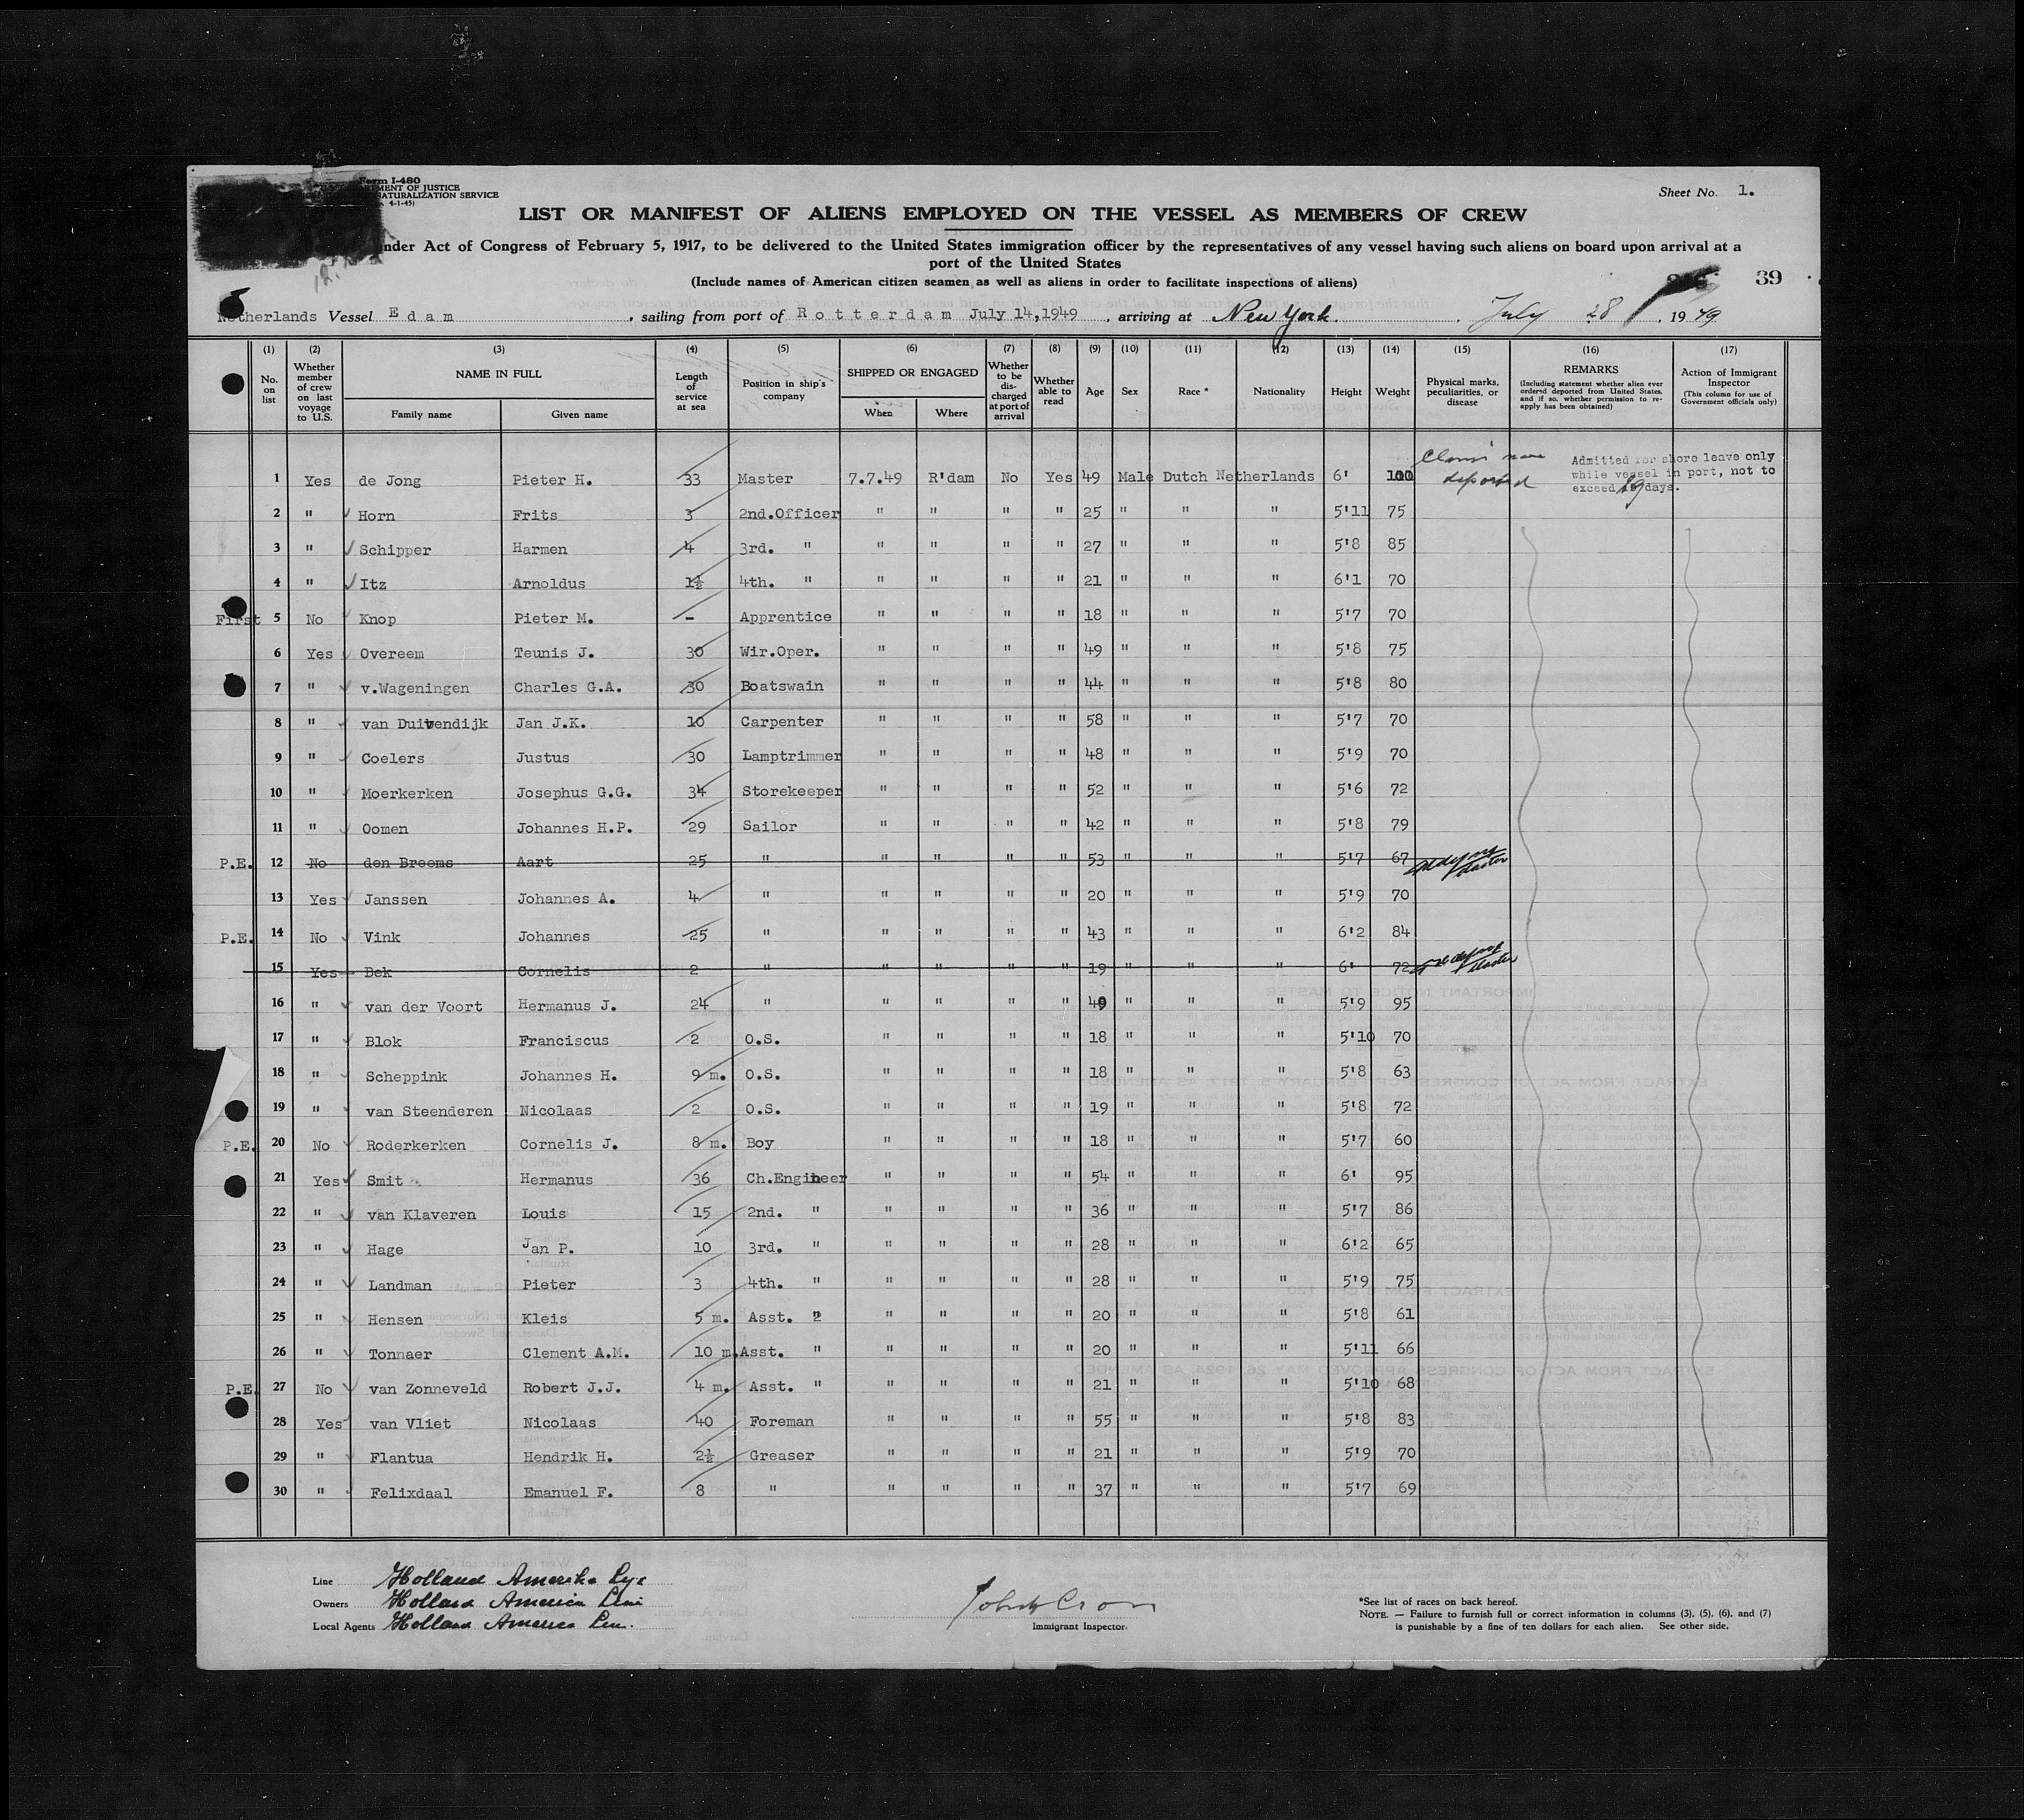 Form I-480
MENT OF JUSTICE
NATURALIZATION SERVICE
4-1-45)
Sheet No. 1.
LIST OR MANIFEST OF ALIENS EMPLOYED ON THE VESSEL AS MEMBERS OF CREW
nder Act of Congress of February 5, 1917, to be delivered to the United States immigration officer by the representatives of any vessel having such aliens on board upon arrival at a
port of the United States
(Include names of American citizen seamen as well as aliens in order to facilitate inspections of aliens)
39
Netherlands Vessel Edam, sailing from port of Rotterdam July 14,1949, arriving at New York. July 28, 1949
(1) (2) (3) (4) (5) (6) (7) (8) (9) (10) (11) (12) (13) (14) (15) (16) (17)
No. on list
Whether member of crew on last voyage to U.S.
NAME IN FULL
Family name Given name
Length of service at sea
Position in ship's company
SHIPPED OR ENGAGED
When Where
Whether to be discharged at port of arrival
Whether able to read
Age
Sex
Race *
Nationality
Height
Weight
Physical marks, peculiarities, or disease
REMARKS
(Including statement whether alien ever ordered deported from United States, and if so, whether permission to re-apply has been obtained)
Action of Immigrant Inspector
(This column for use of Government officials only)
1 Yes de Jong Pieter H. 33 Master 7.7.49 R'dam No Yes 49 Male Dutch Netherlands 6' 100 deported
Admitted for shore leave only
while vessel in port, not to
exceed 29 days.
2 " Horn Frits 3 2nd.Officer " " " " 25 " " " 5'11 75
3 " Schipper Harmen 4 3rd. " " " " " 27 " " " 5'8 85
4 " Itz Arnoldus 1½ 4th. " " " " " 21 " " " 6'1 70
First 5 No Knop Pieter M. - Apprentice " " " " 18 " " " 5'7 70
6 Yes Overeem Teunis J. 30 Wir.Oper. " " " " 49 " " " 5'8 75
7 " v.Wageningen Charles G.A. 30 Boatswain " " " " 44 " " " 5'8 80
8 " van Duivendijk Jan J.K. 10 Carpenter " " " " 58 " " " 5'7 70
9 " Coelers Justus 30 Lamptrimmer " " " " 48 " " " 5'9 70
10 " Moerkerken Josephus G.G. 34 Storekeeper " " " " 52 " " " 5'6 72
11 " Oomen Johannes H.P. 29 Sailor " " " " 42 " " " 5'8 79
P.E. 12 No den Breems Aart 25 " " " " " 53 " " " 5'7 67
13 Yes Janssen Johannes A. 4 " " " " " 20 " " " 5'9 70
P.E. 14 No Vink Johannes 25 " " " " " 43 " " " 6'2 84
15 Yes Bek Cornelis 2 " " " " " 19 " " " 6' 72
16 " van der Voort Hermanus J. 24 " " " " " 49 " " " 5'9 95
17 " Blok Franciscus 2 O.S. " " " " 18 " " " 5'10 70
18 " Scheppink Johannes H. 9 m. O.S. " " " " 18 " " " 5'8 63
19 " van Steenderen Nicolaas 2 O.S. " " " " 19 " " " 5'8 72
P.E. 20 No Roderkerken Cornelis J. 8 m. Boy " " " " 18 " " " 5'7 60
21 Yes Smit Hermanus 36 Ch.Engineer " " " " 54 " " " 6' 95
22 " van Klaveren Louis 15 2nd. " " " " " 36 " " " 5'7 86
23 " Hage Jan P. 10 3rd. " " " " " 28 " " " 6'2 65
24 " Landman Pieter 3 4th. " " " " " 28 " " " 5'9 75
25 " Hensen Kleis 5 m. Asst. " " " " " 20 " " " 5'8 61
26 " Tonnaer Clement A.M. 10 m. Asst. " " " " " 20 " " " 5'11 66
P.E. 27 No van Zonneveld Robert J.J. 4 m. Asst. " " " " " 21 " " " 5'10 68
28 Yes van Vliet Nicolaas 40 Foreman " " " " 55 " " " 5'8 83
29 " Flantua Hendrik H. 2½ Greaser " " " " 21 " " " 5'9 70
30 " Felixdaal Emanuel F. 8 " " " " " 37 " " " 5'7 69
Line Holland Amerika
Owners Holland America
Local Agents Holland America
Immigrant Inspector.
*See list of races on back hereof.
NOTE.—Failure to furnish full or correct information in columns (3), (5), (6), and (7)
is punishable by a fine of ten dollars for each alien. See other side.